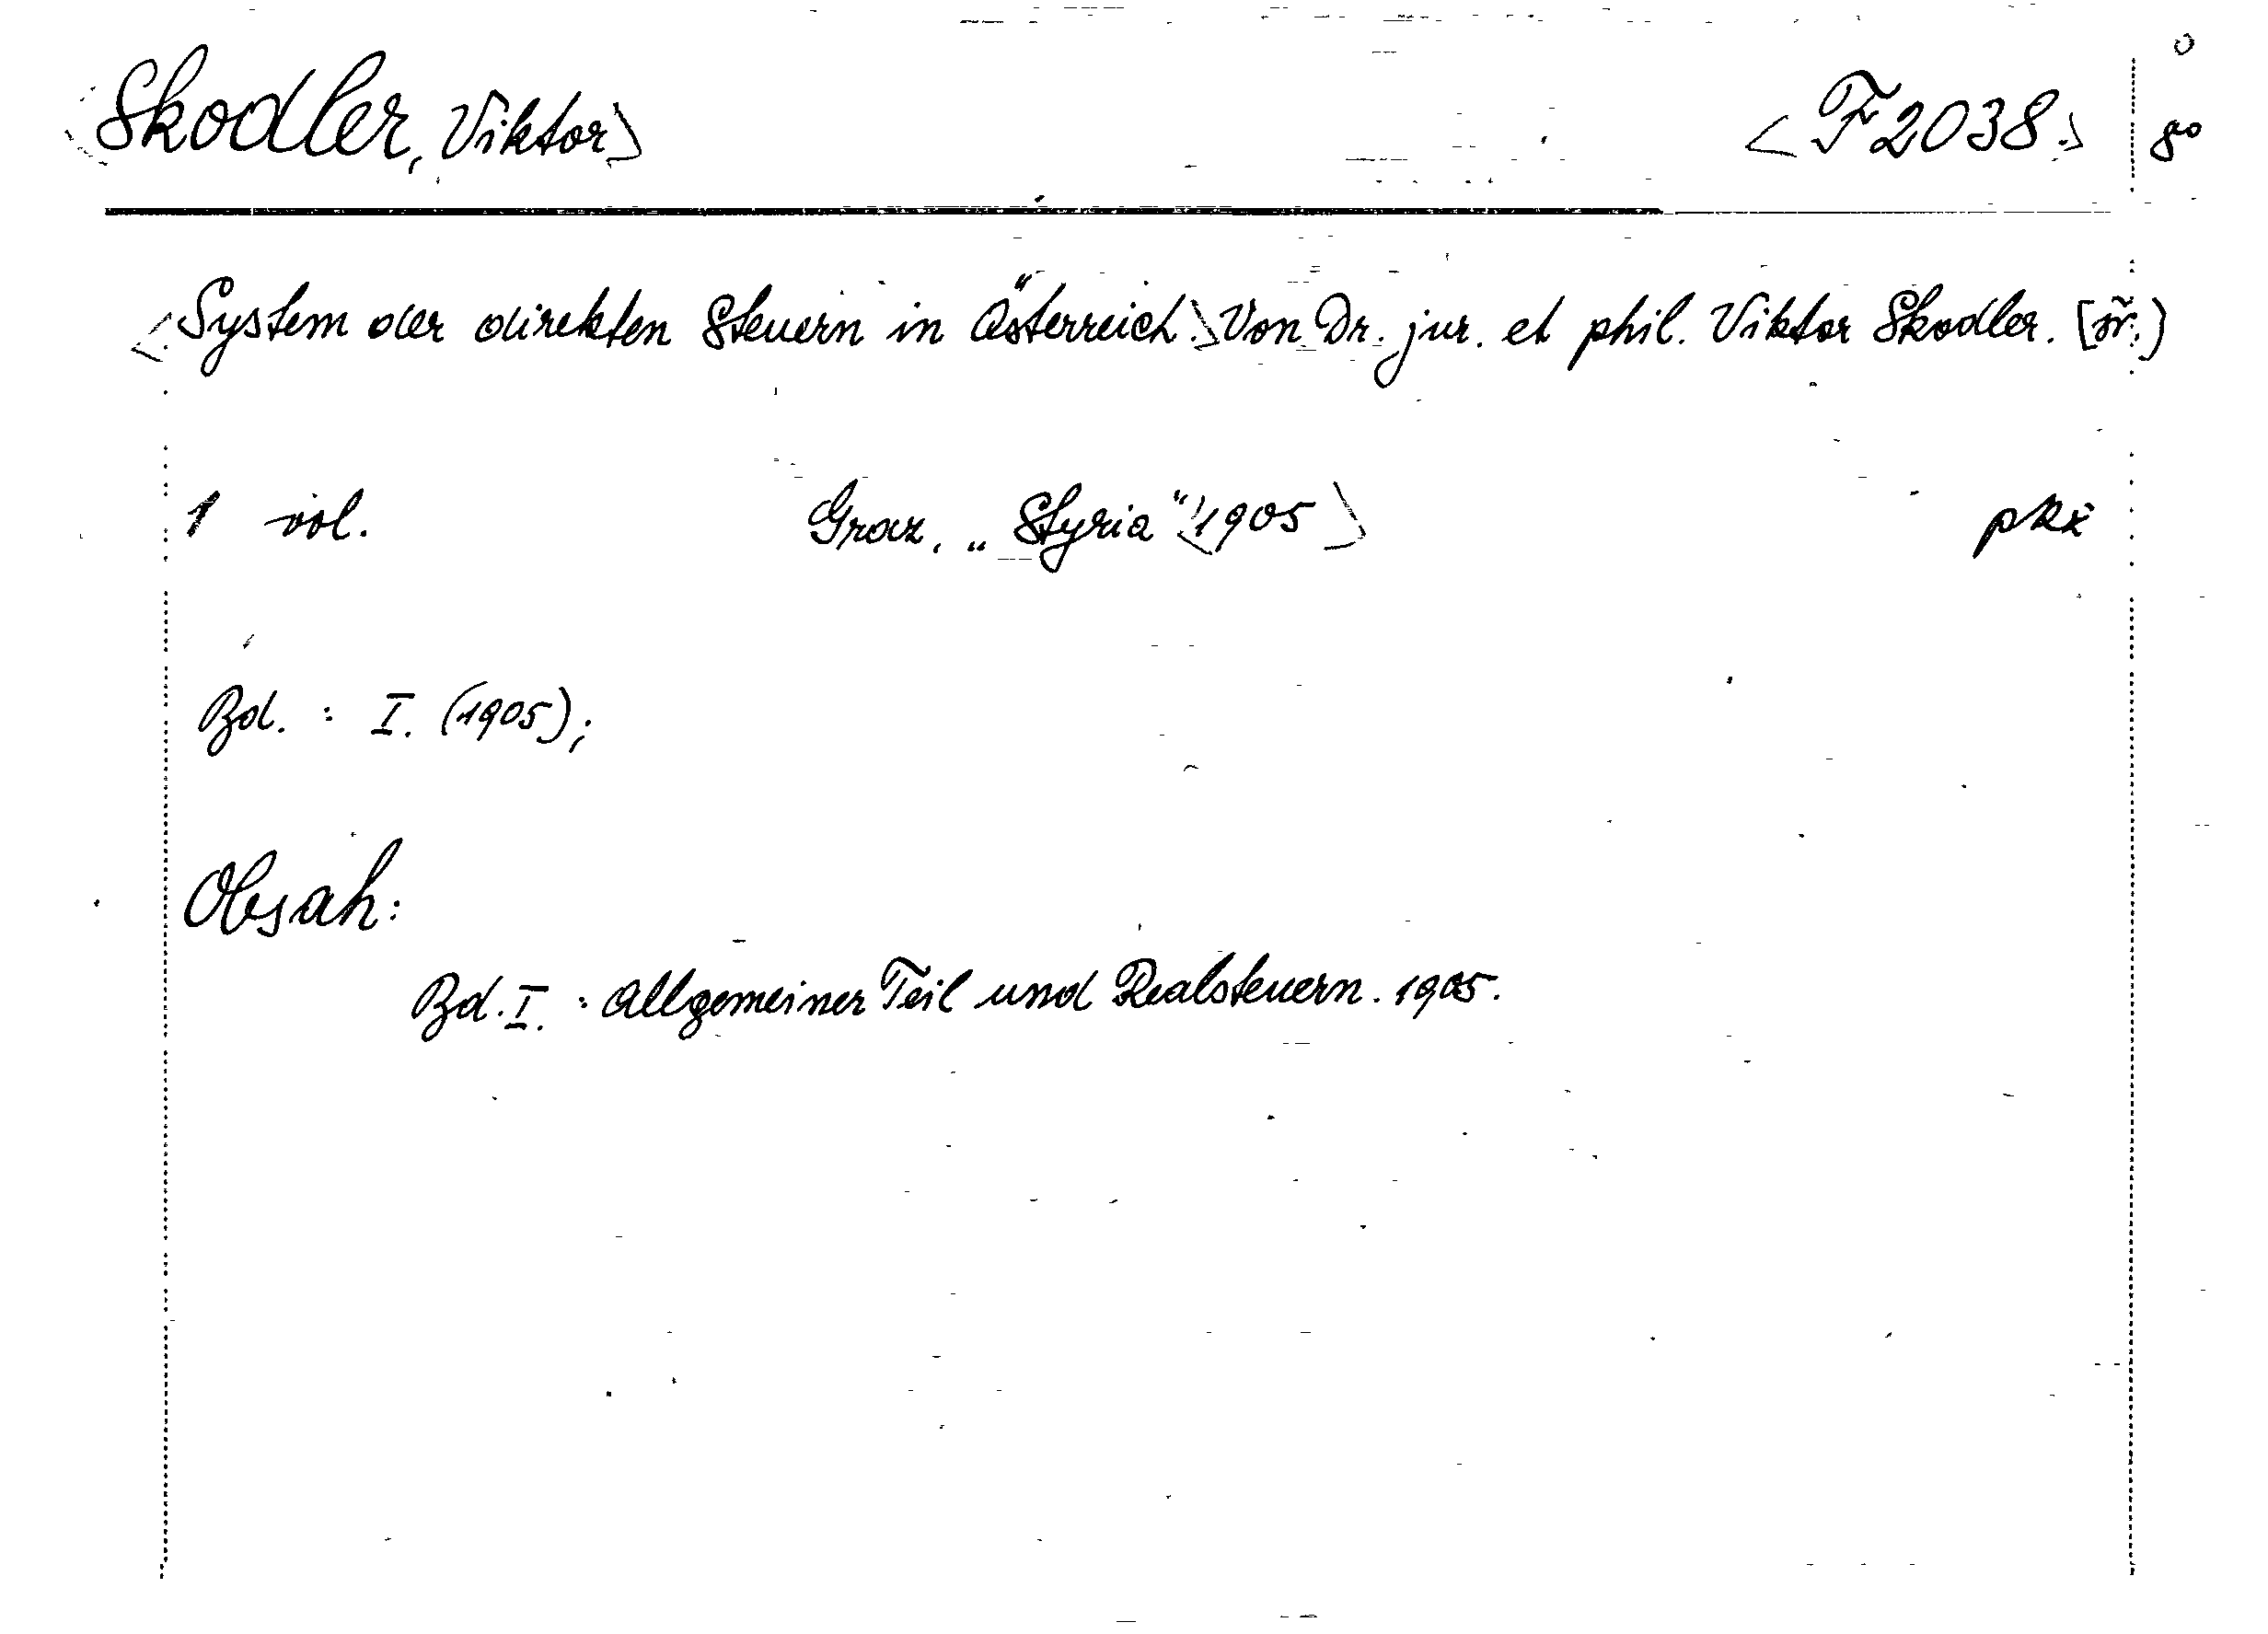 <Skodler, Viktor> <F 2038> 8°
<System der direkten Steuern in Österreich.> Von Dr. jur. et phil. Viktor Skodler.
1 vol. Graz, „Styria" <1905>
Bd. : I. (1905);
Obsah:
Bd. I. : Allgemeiner Teil und Realsteuern. 1905.